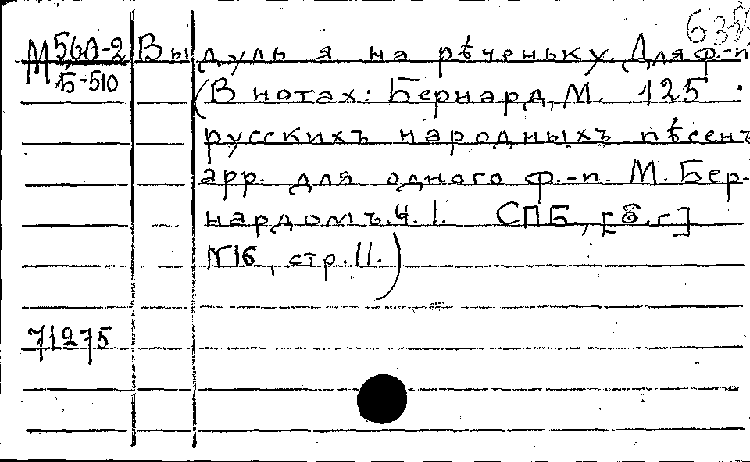 638
М 560-2
Б-510
Выдуль я на рѣченьку. Для ф-п
(В нотах: Бернард, М. 125
русскихъ народныхъ пѣсенъ
арр. для одного ф.-п. М. Бер-
нардомъ. ч. I. СПБ, [б.г]
№16, стр. 11.)
71275